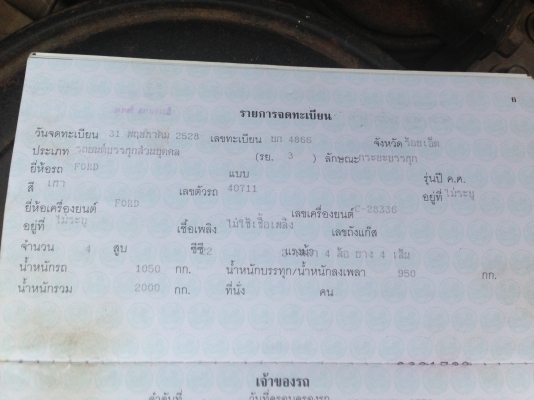 6
รายการจดทะเบียน
วันจดทะเบียน 31 พฤษภาคม 2528 เลขทะเบียน 4866 จังหวัด ร้อยเอ็ด
ประเภท รถยนต์บรรทุกส่วนบุคคล (รย. 3 ) ลักษณะ กระบะบรรทุก
ยี่ห้อรถ FORD แบบ รุ่นปี ค.ศ.
สี เทา เลขตัวรถ 40711 อยู่ที่ ไม่ระบุ
ยี่ห้อเครื่องยนต์ FORD เลขเครื่องยนต์ C-28336
อยู่ที่ ไม่ระบุ เชื้อเพลิง ไม่ใช้เชื้อเพลิง เลขถังแก๊ส
จำนวน 4 สูบ ซีซี แรงม้า 4 ล้อ ยาง 4 เส้น
น้ำหนักรถ 1050 กก. น้ำหนักบรรทุก/น้ำหนักลงเพลา 950 กก.
น้ำหนักรวม 2000 กก. ที่นั่ง คน
เจ้าของรถ
ลำดับที่ วันที่ครอบครองรถ